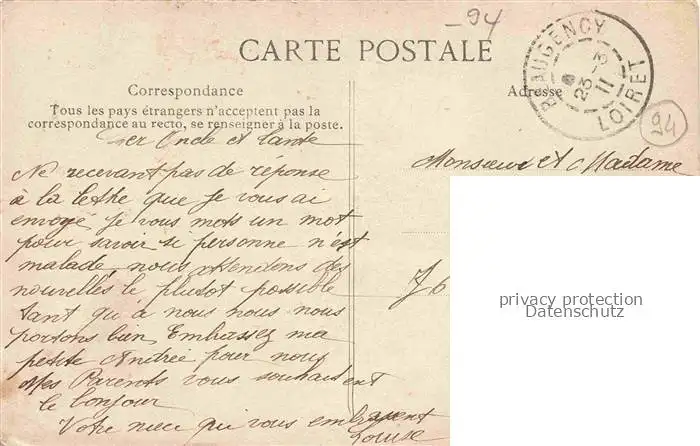 -94
CARTE POSTALE
Correspondance
Tous les pays étrangers n'acceptent pas la
correspondance au recto, se renseigner à la poste.
Adresse
BEAUGENCY
23 -3
11
LOIRET
94
Cher Oncle et Tante
Ne recevant pas de réponse
à la lethe que je vous ai
envoyé je vous mets un mot
pour savoir si personne n'est
malade, nous attendons des
nouvelles le plutot possible
tant qu'à nous nous nous
portons bien, Embrassez ma
petite Andrée pour nous
Mes Parents vous souhaitent
le bonjour
Votre niece qui vous embrassent
Louise
Monsieur et Madame
J6
privacy protection
Datenschutz